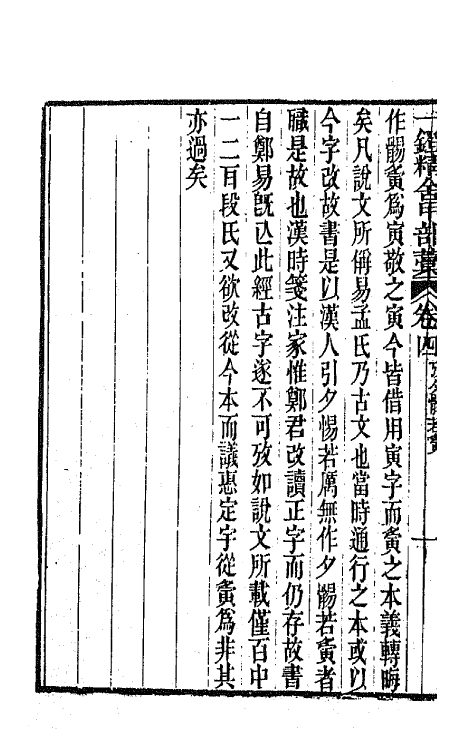 作䯜夤為寅敬之寅今皆借用寅字而夤之本義轉晦
矣凡說文所偁易孟氏乃古文也當時通行之本或以
今字改故書是以漢人引夕惕若厲無作夕䯜若夤者
職是故也漢時箋注家惟鄭君改讀正字而仍存故書
自鄭易旣亾此經古字遂不可攷如說文所載僅百中
一二百段氏又欲改從今本而議惠定字從夤為非其
亦過矣
卷四